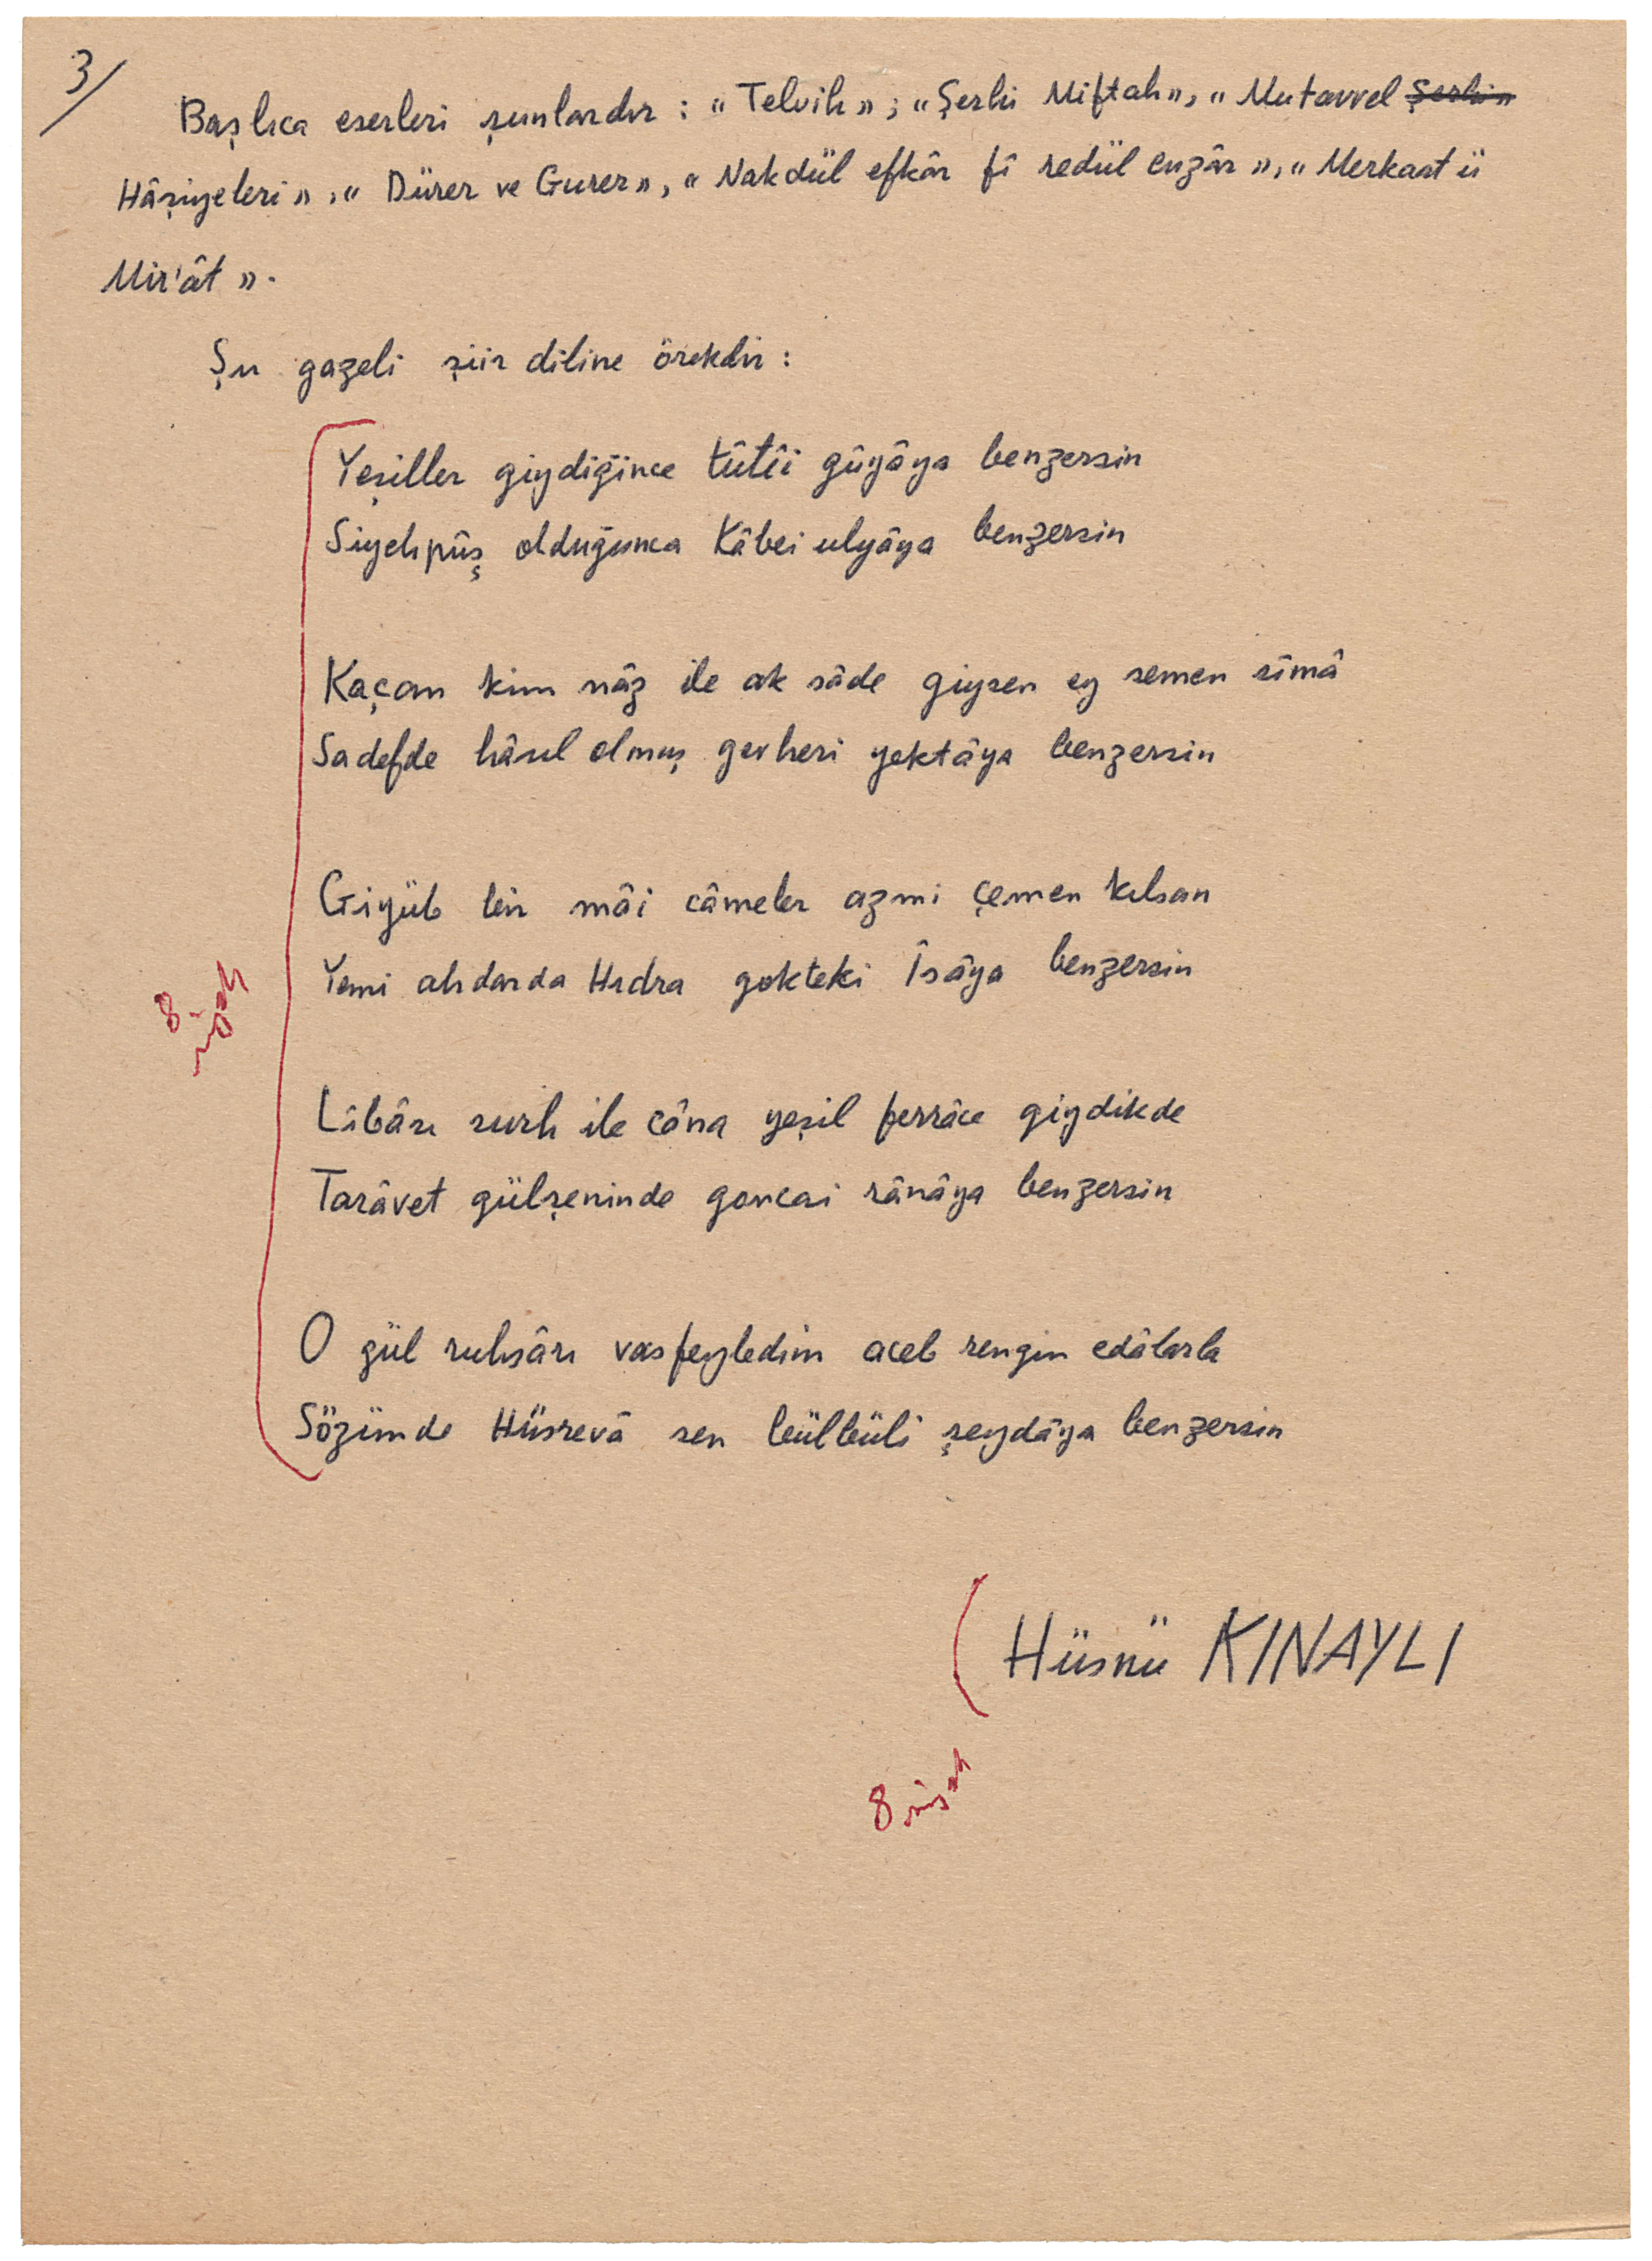 3/
Başlıca eserleri şunlardır : « Telvih » ; « Şerhi Miftah », « Mutavvel Şerhi»
Hâşiyeleri » , « Dürer ve Gurer », « Nakdül efkâr fî redül enzâr », « Merkaat ü
Mir'ât » .
Şu gazeli şiir diline örekdir :
Yeşiller giydiğince tûtîi gûyâya benzersin
Siyehpûş olduğunca Kâbei ulyâya benzersin
Kaçan kim nâz ile ak sâde giysen ey semen sîmâ
Sadefde hâsıl olmuş gevheri yektâya benzersin
Giyüb bir mâi câmeler azmi çemen kılsan
Yemi ahdarda Hıdra gokteki Îsâya benzersin
Libâsı surh ile câna yeşil ferrâce giydikde
Tarâvet gülşeninde goncai rânâya benzersin
O gül ruhsârı vasfeyledim aceb rengin edâlarla
Sözümde Hüsrevâ sen bülbüli şeydâya benzersin
Hüsnü KINAYLI
8
8